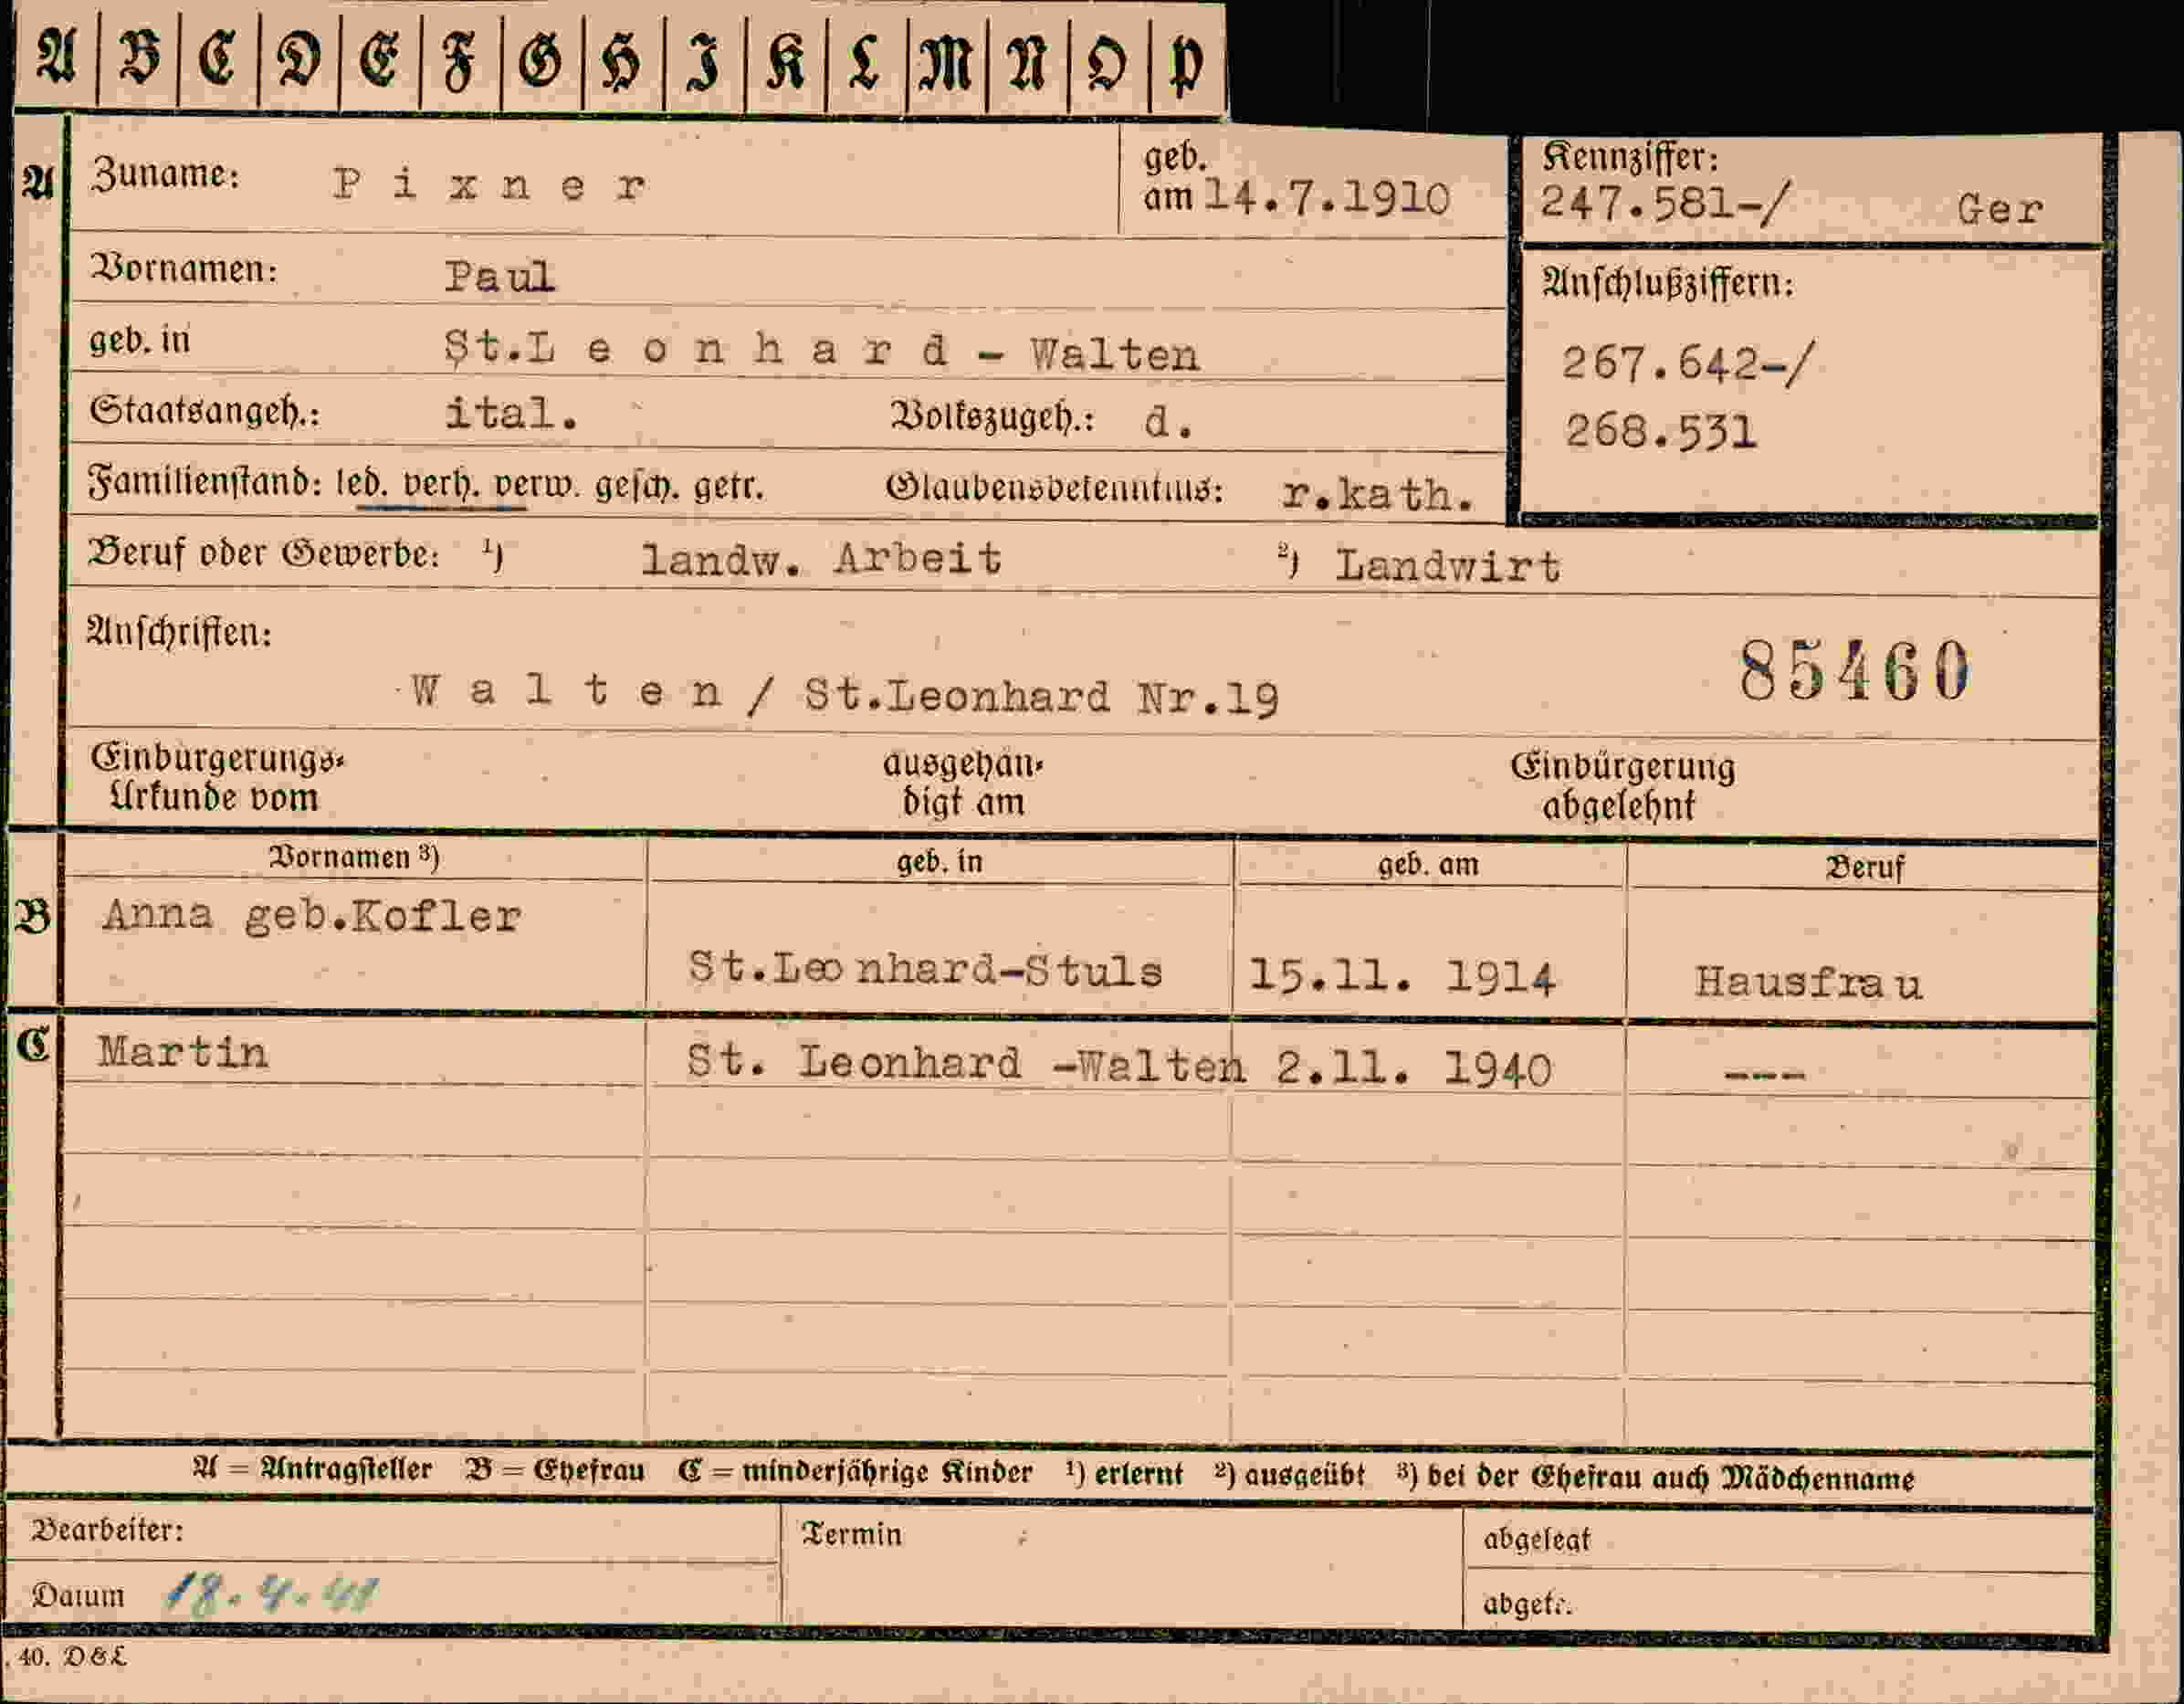 A B C D E F G H I K L M N O P
A Zuname: Pixner geb. am 14.7.1910
Kennziffer: 247.581-/ Ger
Vornamen: Paul
geb. in St.Leonhard - Walten
Anschlußziffern:
267.642-/
268.531
Staatsangeh.: ital. Volkszugeh.: d.
Familienstand: led. verh. verw. gesch. getr. Glaubensbekenntnis: r.kath.
Beruf oder Gewerbe: 1) landw. Arbeit 2) Landwirt
Anschriften:
85460
Walten / St.Leonhard Nr.19
Einbürgerungs-Urkunde vom ausgehändigt am Einbürgerung abgelehnt
Vornamen 3) geb. in geb. am Beruf
B Anna geb.Kofler
St.Leonhard-Stuls 15.11. 1914 Hausfrau
C Martin St. Leonhard -Walten 2.11. 1940 ---
A = Antragsteller B = Ehefrau C = minderjährige Kinder 1) erlernt 2) ausgeübt 3) bei der Ehefrau auch Mädchenname
Bearbeiter: Termin abgelegt
Datum 18.4.41 abgetr.
. 40. D&L